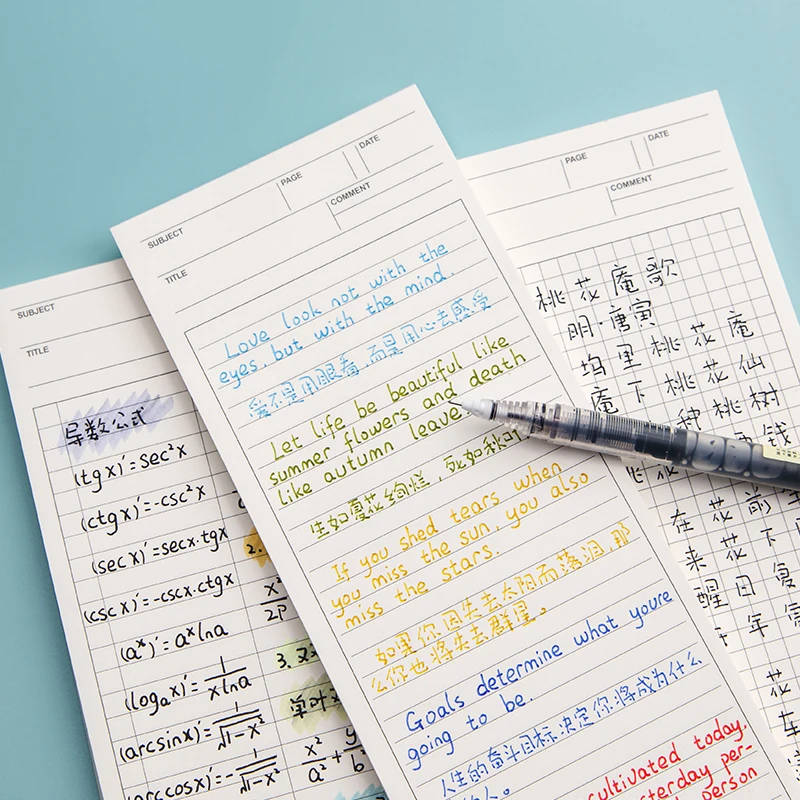 SUBJECT
TITLE
导数公式
(tgx)′=sec²x
(ctgx)′=-csc²x
(secx)′=secx.tgx
(cscx)′=-cscx.ctgx
(aˣ)′=aˣlna
(logₐx)′=1/xlna
(arcsinx)′=1/√1-x²
(arccosx)′=-1/√1-x²
2.
x²/2p
3.
单叶
x²/a²+y/b
SUBJECT
PAGE
DATE
TITLE
COMMENT
Love look not with the
eyes, but with the mind.
爱不是用眼看,而是用心去感受
Let life be beautiful like
summer flowers and death
like autumn leave
生如夏花绚烂,死如秋叶
If you shed tears when
you miss the sun, you also
miss the stars.
如果你因失去太阳而落泪,那
么你也将失去群星。
Goals determine what youre
going to be.
人生的奋斗目标决定你将成为什么
人。
cultivated today,
sterday per-
person
PAGE
DATE
COMMENT
桃花庵歌
明·唐寅
坞里桃花庵
庵下桃花仙
种桃树
钱
在花前
来花下
醒日复
年
花
车